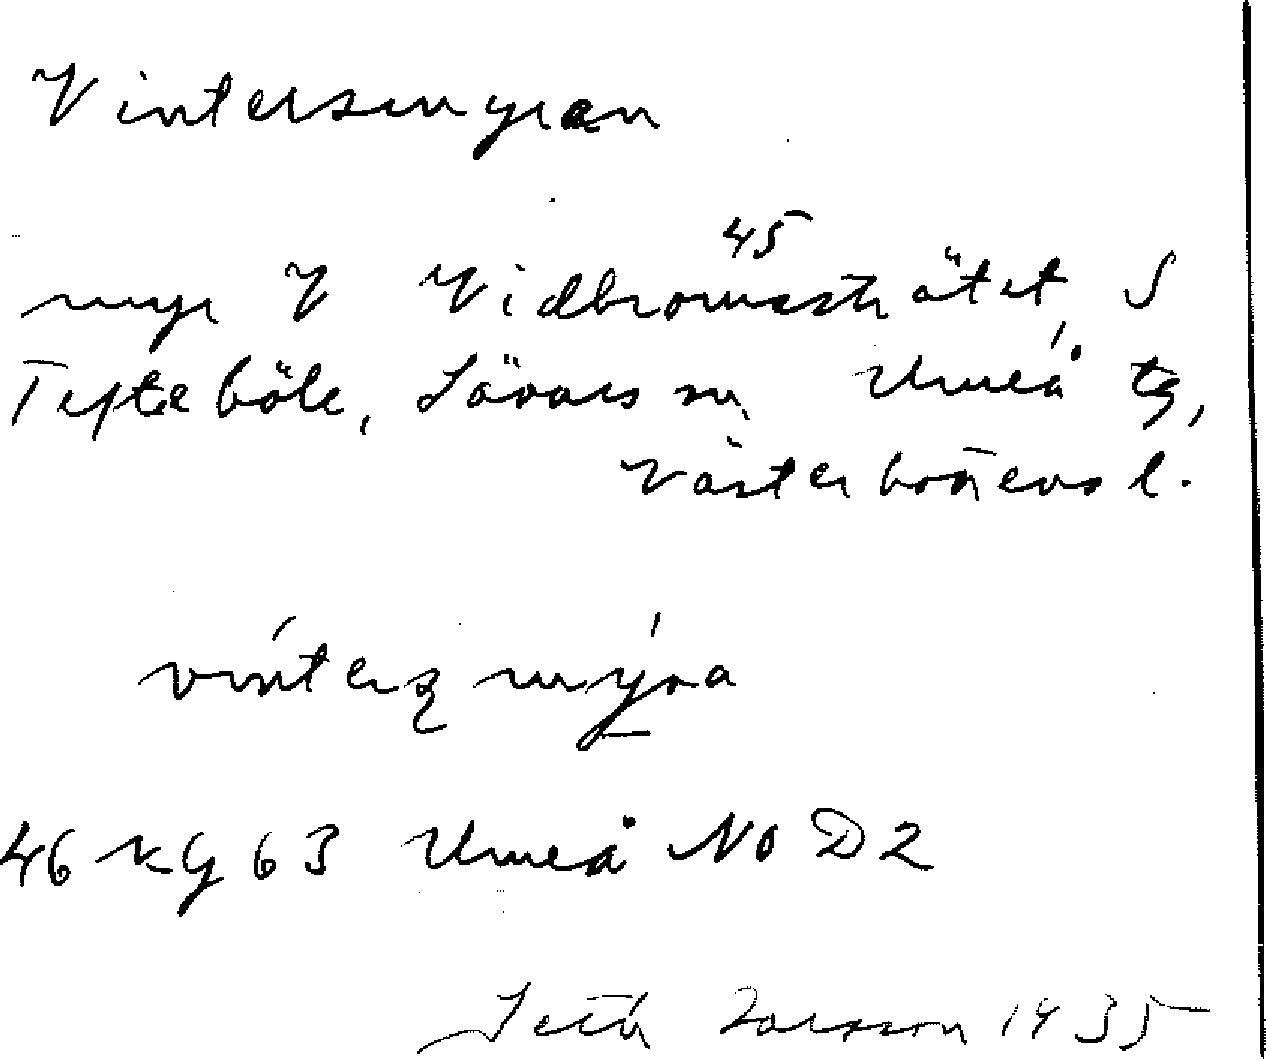 Vintersmyran
45
myr V Vidbromsstrãtet, S
Tefteböle, Sävars sn, Umeå tg,
Västerbottens l.
víntersmýra
46 KG 63 Umeå NO D2
Seth Larsson 1935